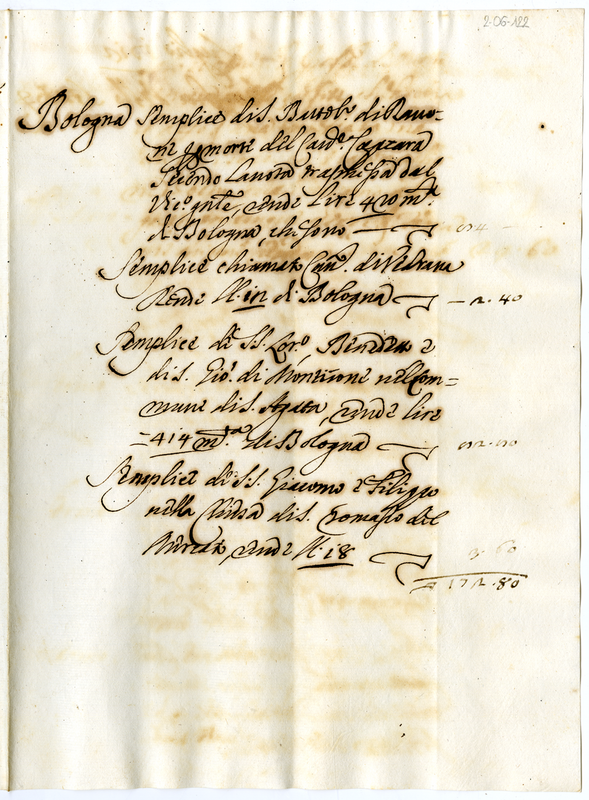 2-06-122
Bologna Semplice di S. Bartol.o di Ravo=
ne p morte del Card.o
secondo la nota trasmessa dal
Vic.o gnle, rende lire 420 mta
di Bologna, che sono 84
Semplice chiamato di Vedrana
Rende ll. 12 di Bologna — 2.40
Semplice di SS. Lor.o, Benedetto e
di S. Gio. di Montirone nel Com=
mune di S. Agata, rende lire
=414 m.ta di Bologna 82.80
Semplice di SS. Giacomo e Filippo
nella Chiesa di S. Tomaso del
Mercato, rende ll. 18 3.60
172.80